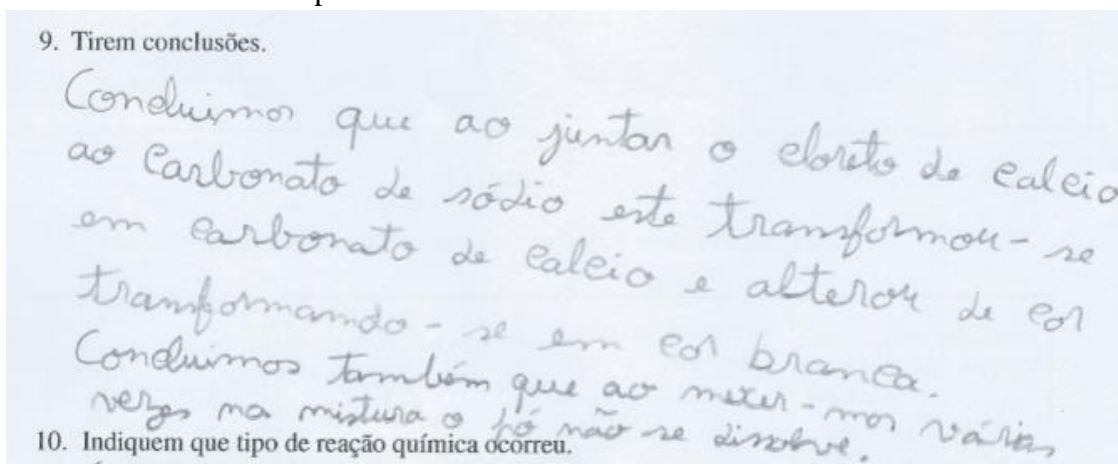 9. Tirem conclusões.
Concluimos que ao juntar o cloreto de calcio
ao carbonato de sódio este transformou-se
em carbonato de calcio e alterou de cor
tranformando-se em cor branca.
Concluimos também que ao mexer-mos várias
vezes na mistura o pó não se dissolve.
10. Indiquem que tipo de reação química ocorreu.